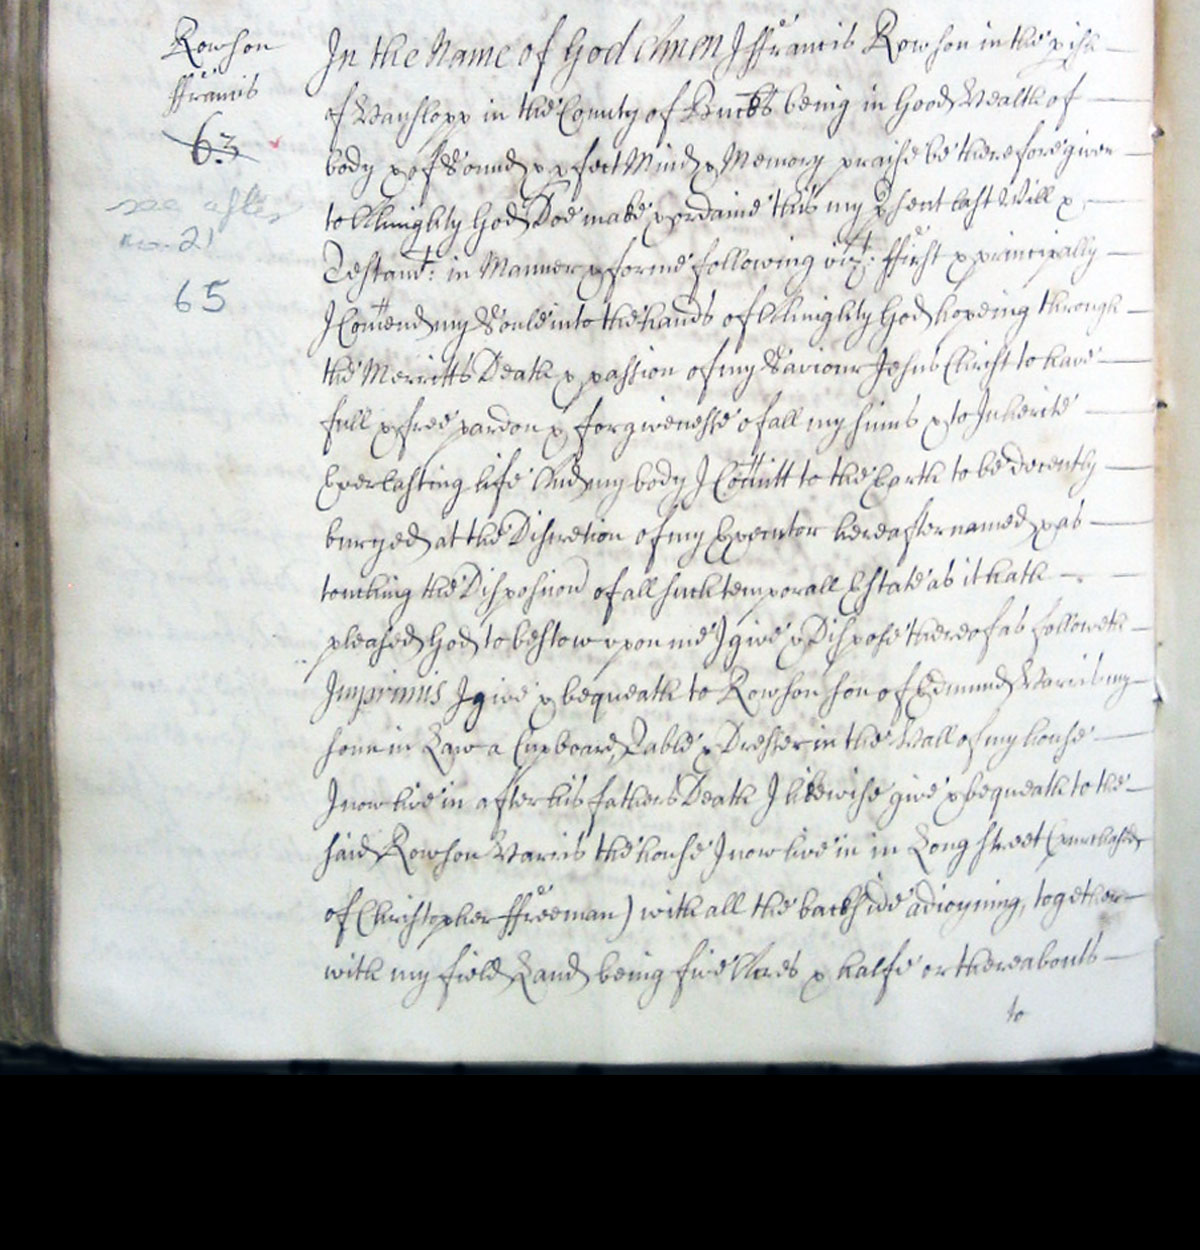 Rowson
ffrancis
63
see after
no. 21
65
In the Name of God Amen I ffrancis Rowson in the pish
of Hanslopp in the County of Bucks being in Good Health of
body & of Sound & pfect Mind & Memory praise be therefore given
to Allmighty God Doe make & ordaine this my psent last Will &
Testamt: in Manner & forme following vizt: ffirst & principally
I Comend my Soule into the hands of Allmighty God hopeing through
the Merritts Death & passion of my Saviour Jesus Christ to have
full & free pardon & forgivenesse of all my sinns & to Inherite
Everlasting life And my body I Comitt to the Earth to be decently
buryed at the Discretion of my Executor hereafter named & as
touching the Disposicon of all such temporall Estate as it hath
pleased God to bestow upon me I give & Dispose thereof as followeth
Imprimis I give & bequeath to Rowson son of Edmund Harris my
sonn in Law a Cupboard Table & Dresser in the Hall of my house
I now live in after his fathers Death I likewise give & bequeath to the
said Rowson Harris the house I now live in in Long street (purchased
of Christopher ffreeman) with all the backside adioyning, together
with my field Land being five Acres & halfe or thereabouts
to